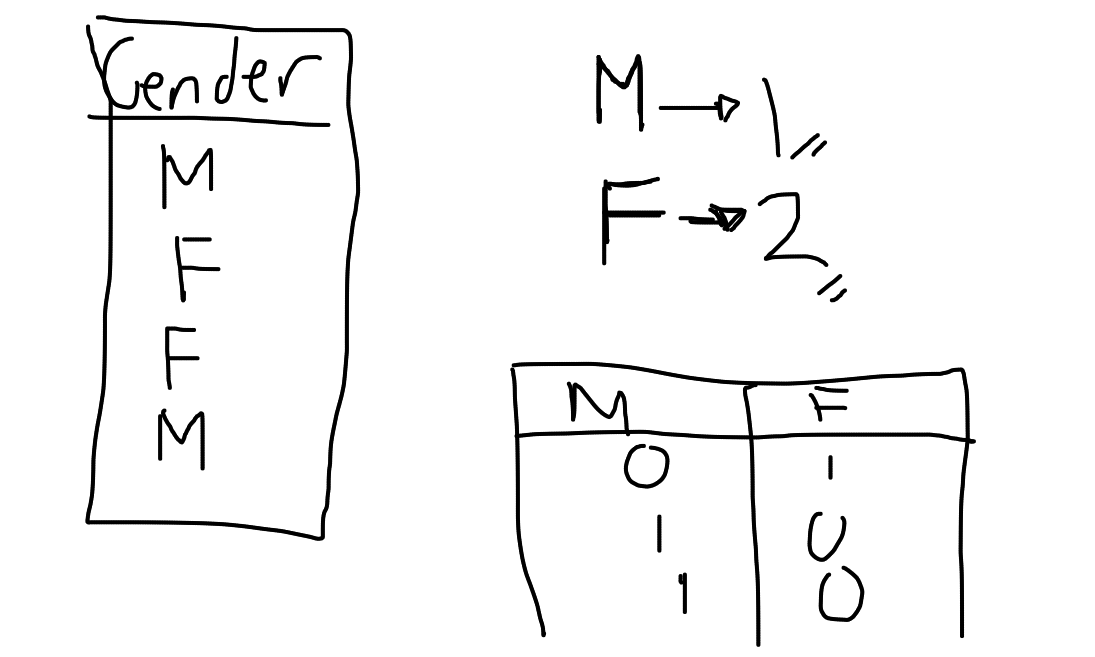 Gender
M
F
F
M
M → 1
F → 2
M F
0 1
1 0
1 0